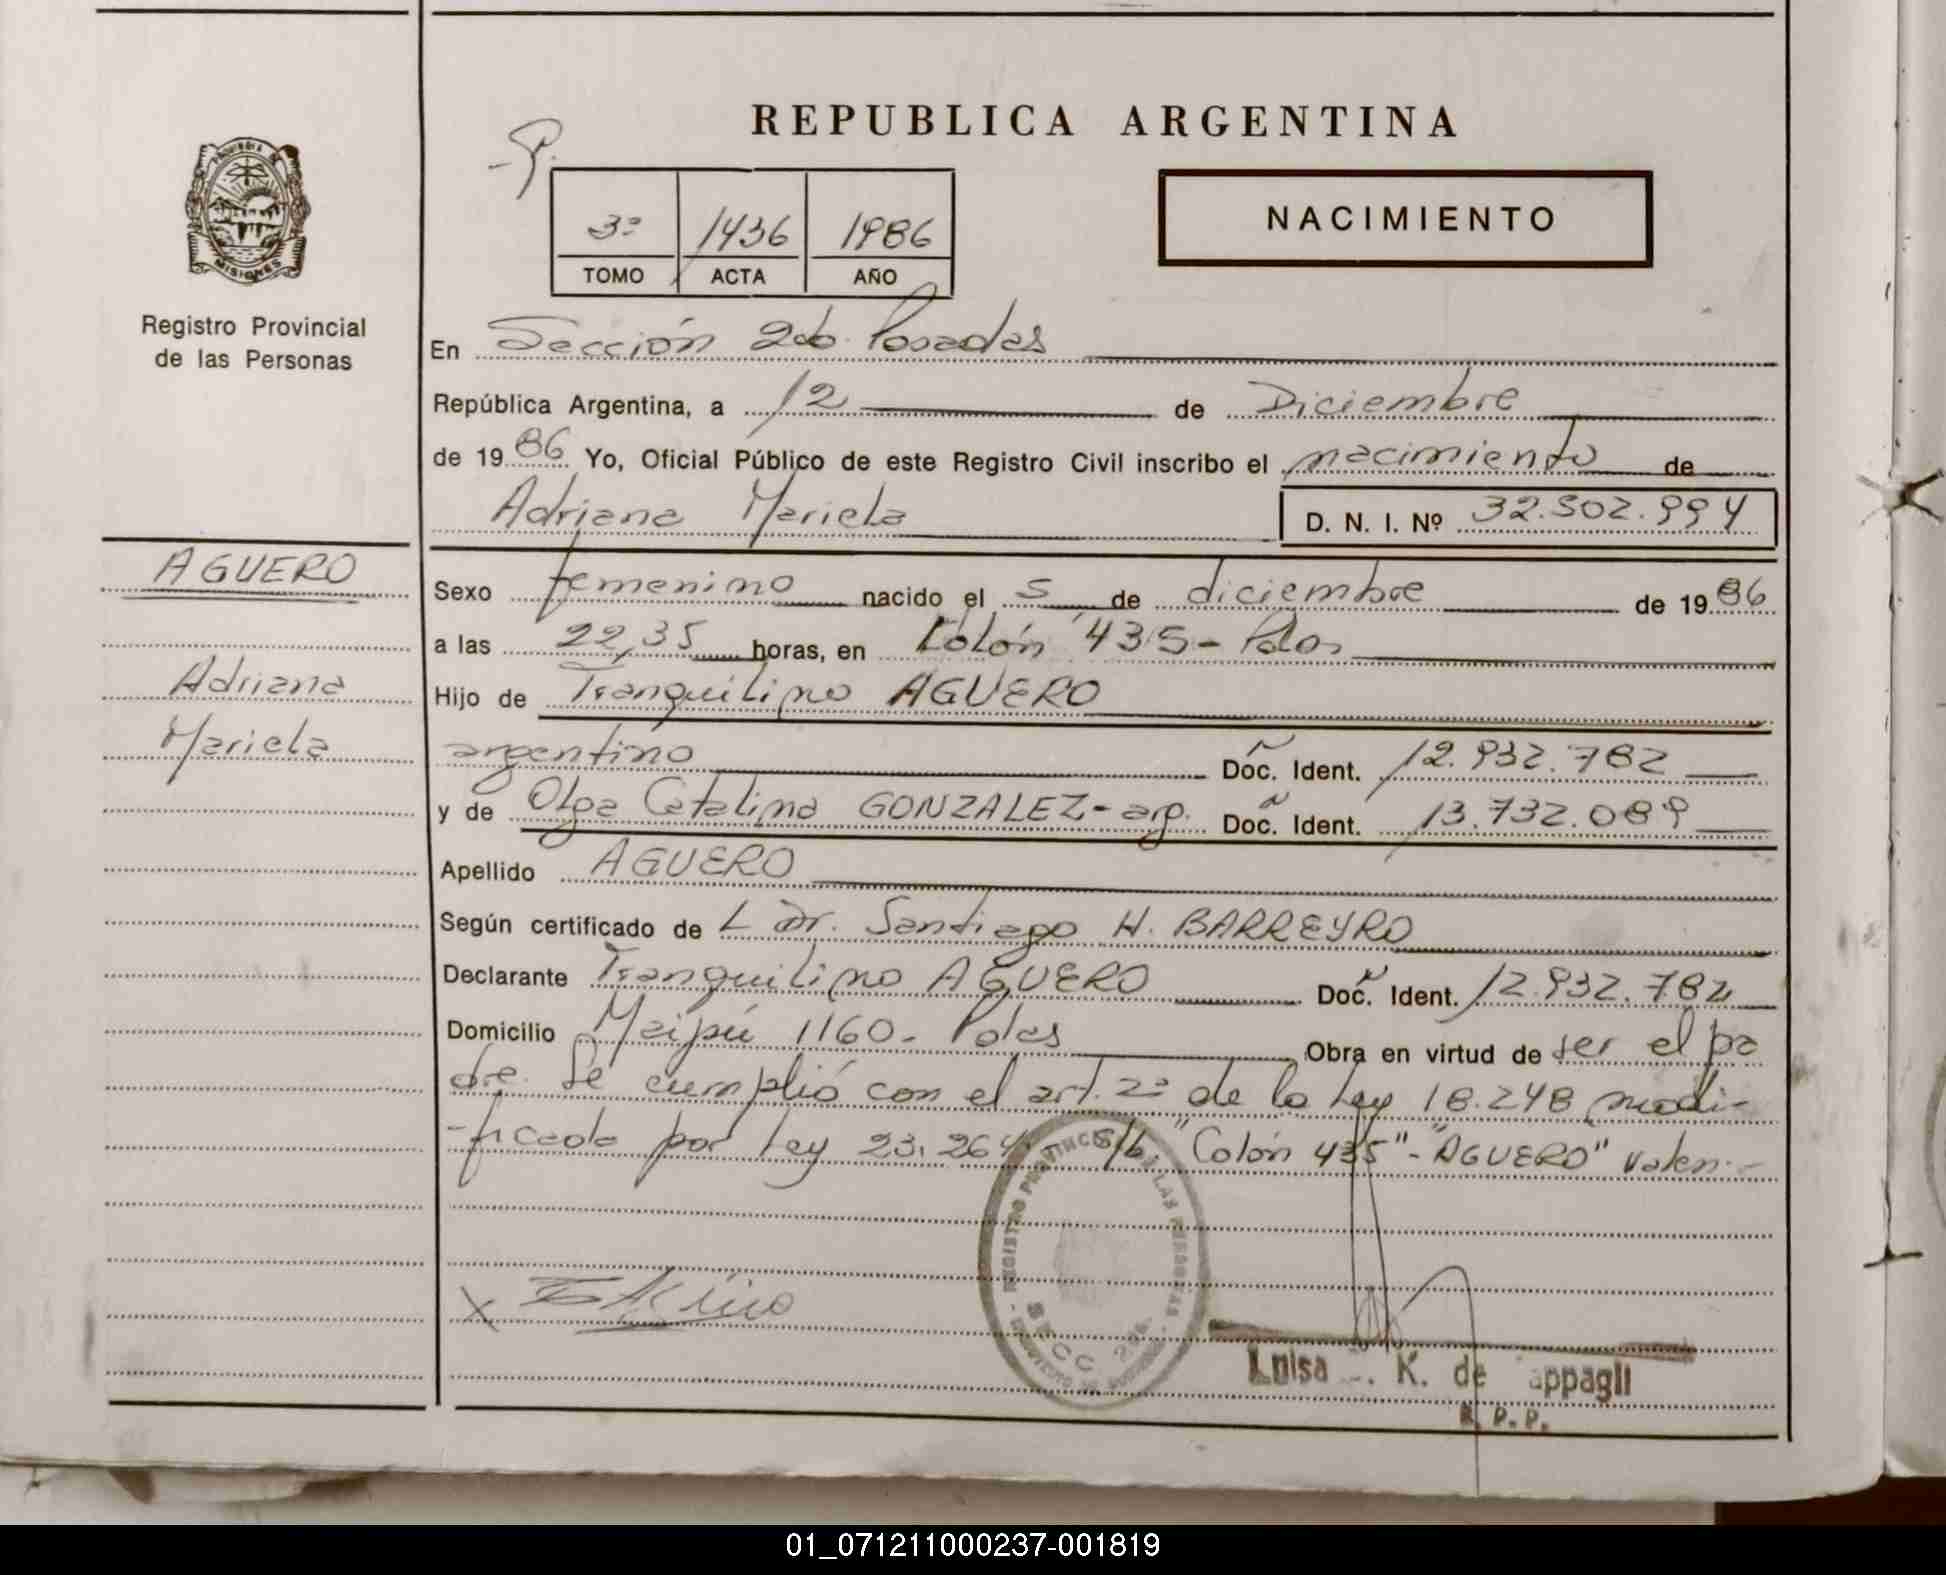 REPUBLICA ARGENTINA
PROVINCIA DE
MISIONES
Registro Provincial
de las Personas
NACIMIENTO
3º 1436 1986
TOMO ACTA AÑO
En Sección 2da. Posadas
República Argentina, a 12 de Diciembre
de 1986 Yo, Oficial Público de este Registro Civil inscribo el nacimiento de
Adriana Mariela D. N. I. Nº 32.502.994
AGUERO
Adriana
Mariela
Sexo femenino nacido el 5 de diciembre de 1986
a las 22,35 horas, en Colón 435 - Pdas
Hijo de Tranquilino AGUERO
argentino Doc. Ident. 12.932.782
y de Olga Catalina GONZALEZ - arg. Doc. Ident. 13.732.089
Apellido AGUERO
Según certificado de L Dr. Santiago H. BARREYRO
Declarante Tranquilino AGUERO Doc. Ident. 12.932.782
Domicilio Maipú 1160 - Pdas Obra en virtud de ser el pa
dre. Se cumplió con el art. 2º de la Ley 18.248 modi-
-ficada por Ley 23.264 s/b. "Colón 435" - "AGUERO" valen.-
REGISTRO PROVINCIAL DE LAS PERSONAS
SECC 2da.
X
Luisa K. de
R. P. P.
01_071211000237-001819